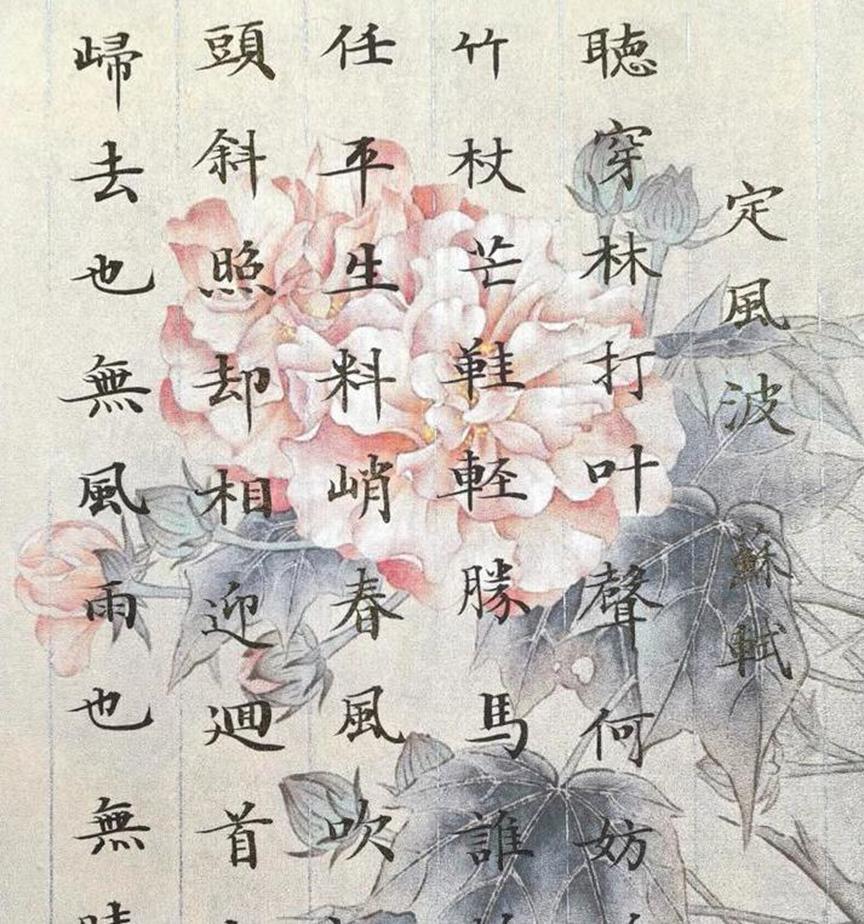 定風波 蘇軾
聴穿林打叶聲何妨
竹杖芒鞋軽勝馬誰
任平生料峭春風吹
頭斜照却相迎迴首
歸去也無風雨也無